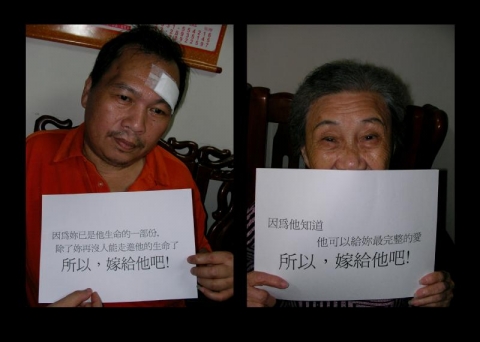 因為妳已是他生命的一部份,
除了妳再沒人能走進他的生命了
所以，嫁給他吧!
因為他知道
他可以給妳最完整的愛
所以，嫁給他吧!